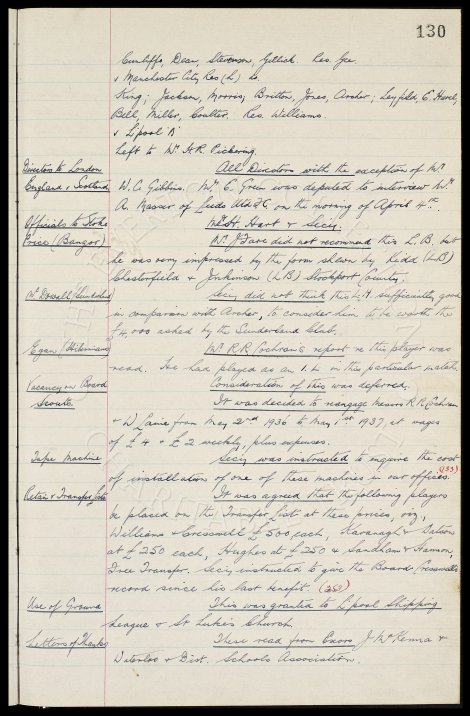 130
Cunliffe, Dean, Stevenson, Gillick. Res. Gee.
v Manchester City Res (h) do.
King; Jackson, Morris; Britton, Jones, Archer; Leyfield, C. Hurel,
Bell, Miller, Coulter. Res. Williams.
v L'pool 'A'
Left to Mr. H.R. Pickering.
Directors to London
England v Scotland
All Directors with the exception of Mr.
W.C. Gibbins. Mr. C. Green was deputed to interview Mr.
A. Masser of Leeds Utd FC on the morning of April 4th.
Officials to Stoke
Messrs. Hart & Secy.
Price (Bangor)
Mr. J. Fare did not recommend this L.B. but
he was very impressed by the form shewn by Kidd (LB)
Chesterfield & Jenkinson (L.B.) Stockport County.
McDowall (Sunderland)
Secy did not think this L.H. sufficiently good
in comparison with Archer, to consider him to be worth the
£4,000 asked by the Sunderland Club.
Egan (Hibernian)
Mr. R.R. Cochran's report re this player was
read. He had played as an I.L. in this particular match.
Consideration of this was deferred.
Vacancy on Board
Scouts.
It was decided to reengage Messrs R.R. Cochran
& W. from May 2nd 1936 to May 1st 1937, at wages
of £4 & £2 weekly, plus expenses.
Tape Machine
Secy was instructed to enquire the cost
(133)
of installation of one of these machines in our offices.
Retain & Transfer Lists
It was agreed that the following players
be placed on the Transfer List at these prices, viz,
Williams & Cresswell £500 each, Kavanagh & Watson
at £250 each, Hughes at £250 & Sandham & Hannon,
Free Transfer. Secy instructed to give the Board Cresswell's
record since his last benefit. (253)
Use of Ground
This was granted to L'pool Shipping
League & St Luke's Church.
Letters of Thanks
These read from Exors J. McKenna &
Waterloo & Dist. Schools Association.